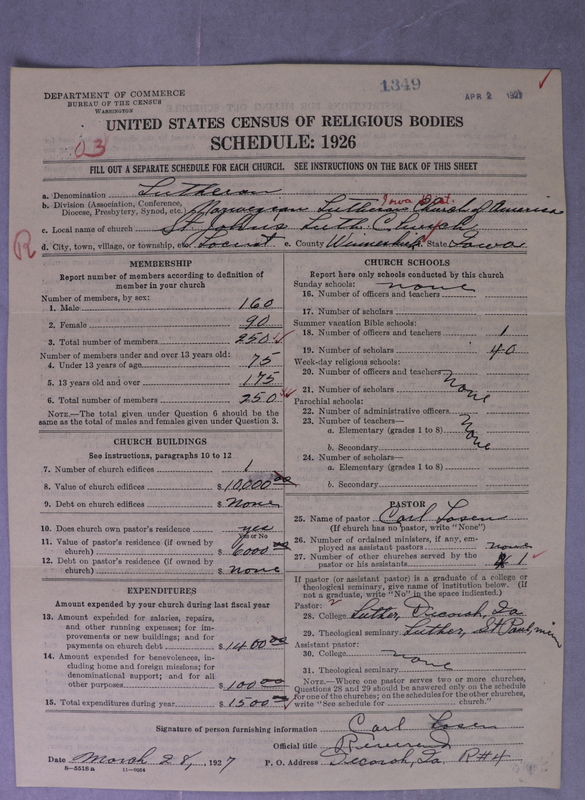 1349
APR 2 1927
DEPARTMENT OF COMMERCE
BUREAU OF THE CENSUS
WASHINGTON
UNITED STATES CENSUS OF RELIGIOUS BODIES
SCHEDULE: 1926
03
FILL OUT A SEPARATE SCHEDULE FOR EACH CHURCH. SEE INSTRUCTIONS ON THE BACK OF THIS SHEET
a. Denomination Lutheran
Iowa Dist.
b. Division (Association, Conference, Diocese, Presbytery, Synod, etc.) Norwegian Lutheran Church of America
c. Local name of church St. Johns Luth. Church
R
d. City, town, village, or township, etc. Locust e. County Winneshiek f. State Iowa
MEMBERSHIP
Report number of members according to definition of
member in your church
Number of members, by sex:
1. Male 160
2. Female 90
3. Total number of members 250
Number of members under and over 13 years old:
4. Under 13 years of age 75
5. 13 years old and over 175
6. Total number of members 250
NOTE.—The total given under Question 6 should be
same as the total of males and females given under Question 3.
CHURCH BUILDINGS
See instructions, paragraphs 10 to 12
7. Number of church edifices 1
8. Value of church edifices $10,000 00
9. Debt on church edifices $ None
10. Does church own pastor's residence yes
Yes or No
11. Value of pastor's residence (if owned by
church) $6000 00
12. Debt on pastor's residence (if owned by
church) $ none
EXPENDITURES
Amount expended by your church during last fiscal year
13. Amount expended for salaries, repairs,
and other running expenses; for im-
provements or new buildings; and for
payments on church debt $1400 00
14. Amount expended for benevolences, in-
cluding home and foreign missions; for
denominational support; and for all
other purposes $100 00
15. Total expenditures during year $1500 00
CHURCH SCHOOLS
Report here only schools conducted by this church
Sunday schools: none
16. Number of officers and teachers
17. Number of scholars
Summer vacation Bible schools:
18. Number of officers and teachers 1
19. Number of scholars 40
Week-day religious schools:
20. Number of officers and teachers
none
21. Number of scholars
Parochial schools:
22. Number of administrative officers
23. Number of teachers—
none
a. Elementary (grades 1 to 8)
b. Secondary
24. Number of scholars—
a. Elementary (grades 1 to 8)
b. Secondary
PASTOR
25. Name of pastor Carl
(If church has no pastor, write "None")
26. Number of ordained ministers, if any, em-
ployed as assistant pastors none
27. Number of other churches served by the
pastor or his assistants 1
If pastor (or assistant pastor) is a graduate of a college or
theological seminary, give name of institution below. (If
not a graduate, write "No" in the space indicated.)
Pastor:
28. College Luther, Decorah, Ia
29. Theological seminary Luther, St Paul, Minn
Assistant pastor:
30. College none
31. Theological seminary
NOTE.—Where one pastor serves two or more churches,
Questions 28 and 29 should be answered only on the schedule
for one of the churches; on the schedules for the other churches,
write "See schedule for church."
Signature of person furnishing information Carl
Official title Reverend
Date March 28, 1927 P. O. Address Decorah, Ia. R#4
8-5518a 11-9054